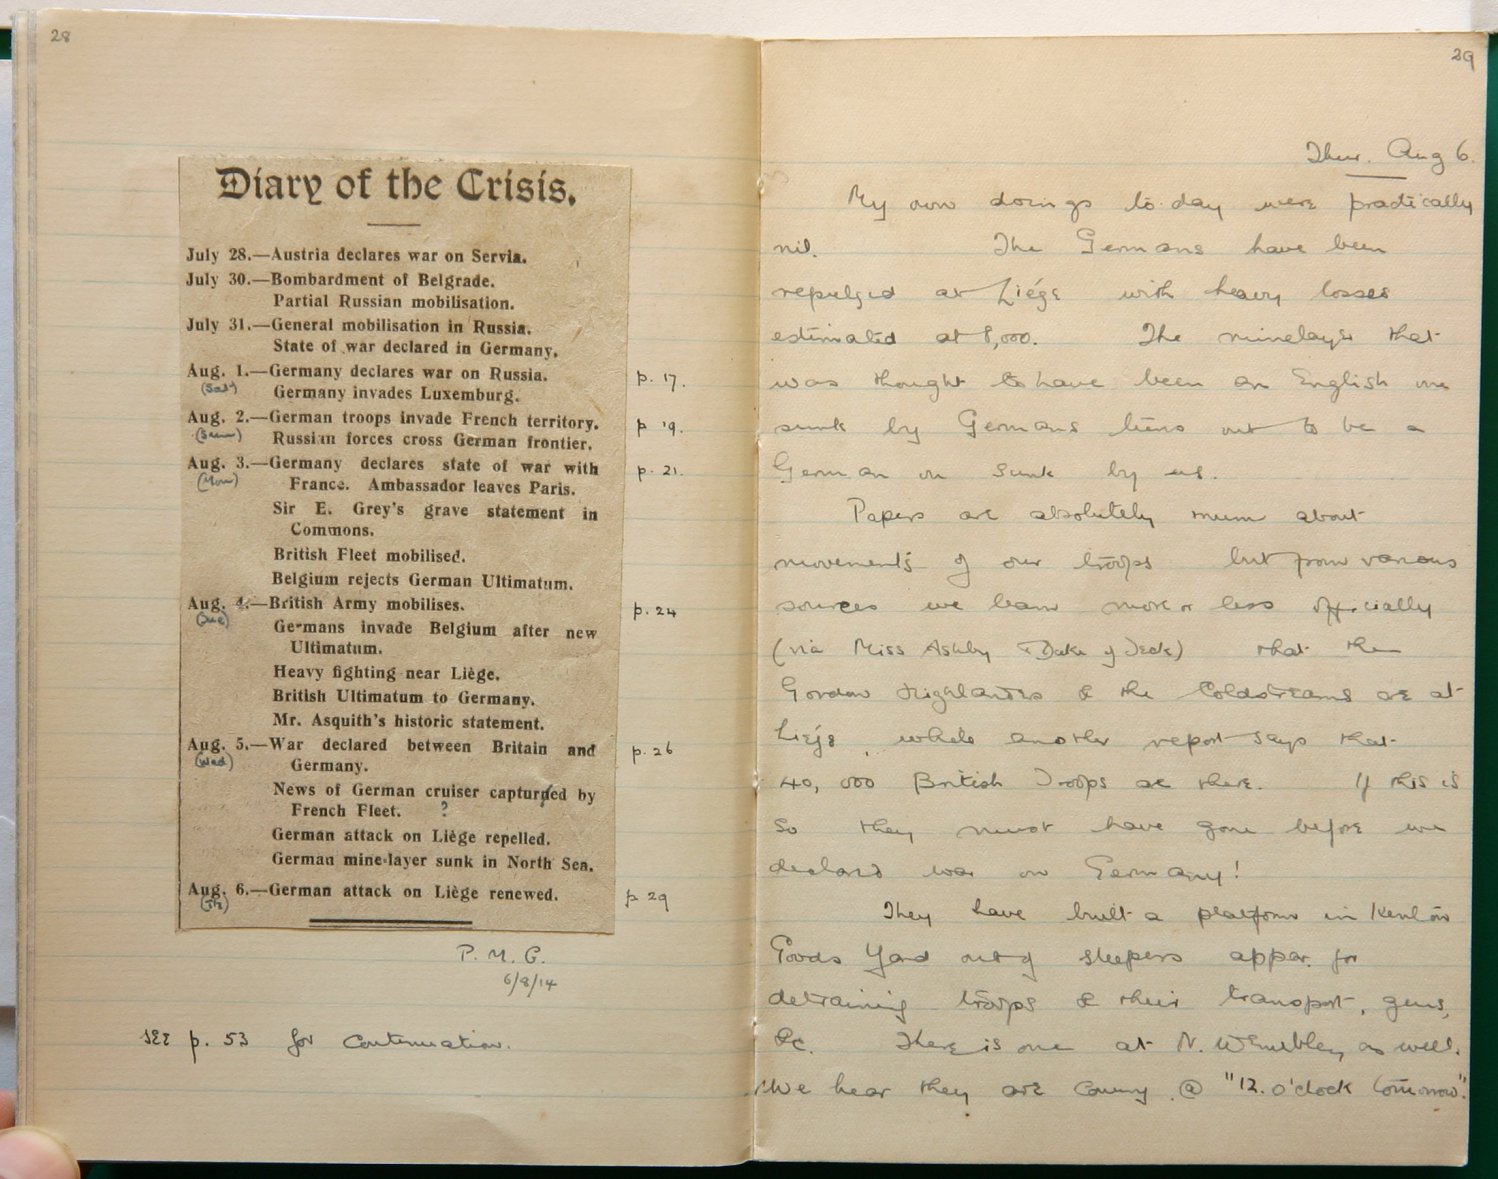 28
Diary of the Crisis.
July 28.—Austria declares war on Servia.
July 30.—Bombardment of Belgrade.
Partial Russian mobilisation.
July 31.—General mobilisation in Russia.
State of war declared in Germany.
Aug. 1.—Germany declares war on Russia. p. 17.
(Sat) Germany invades Luxemburg.
Aug. 2.—German troops invade French territory. p 19.
(Sun) Russian forces cross German frontier.
Aug. 3.—Germany declares state of war with p. 21.
(Mon) France. Ambassador leaves Paris.
Sir E. Grey's grave statement in
Commons.
British Fleet mobilised.
Belgium rejects German Ultimatum.
Aug. 4.—British Army mobilises. p. 24
(Tue) Germans invade Belgium after new
Ultimatum.
Heavy fighting near Liège.
British Ultimatum to Germany.
Mr. Asquith's historic statement.
Aug. 5.—War declared between Britain and p. 26
(Wed) Germany.
News of German cruiser captured by
French Fleet. ?
German attack on Liège repelled.
German mine-layer sunk in North Sea.
Aug. 6.—German attack on Liège renewed. p 29
(Th)
P. M. G.
6/8/14
SEE p. 53 for Continuation.
29
Thur. Aug 6.
My own doings to day were practically
nil. The Germans have been
repulsed at Liége with heavy losses
estimated at 8,000. The minelayer that
was thought to have been an English one
sunk by Germans turns out to be a
German on sunk by us.
Papers are absolutely mum about
movements of our troops but from various
sources we learn more or less officially
(via Miss Ashby & Duke of Teck) that the
Gordon Highlanders & the Coldstreams are at
Liége, while another report says that
40,000 British Troops are there. If this is
so they must have gone before we
declared war on Germany!
They have built a platform in Kenton
Goods Yard out of sleepers appar. for
detraining troops & their transport, guns,
&c. There is one at N. Wembley as well.
We hear they are coming @ "12. o'clock tomorrow".